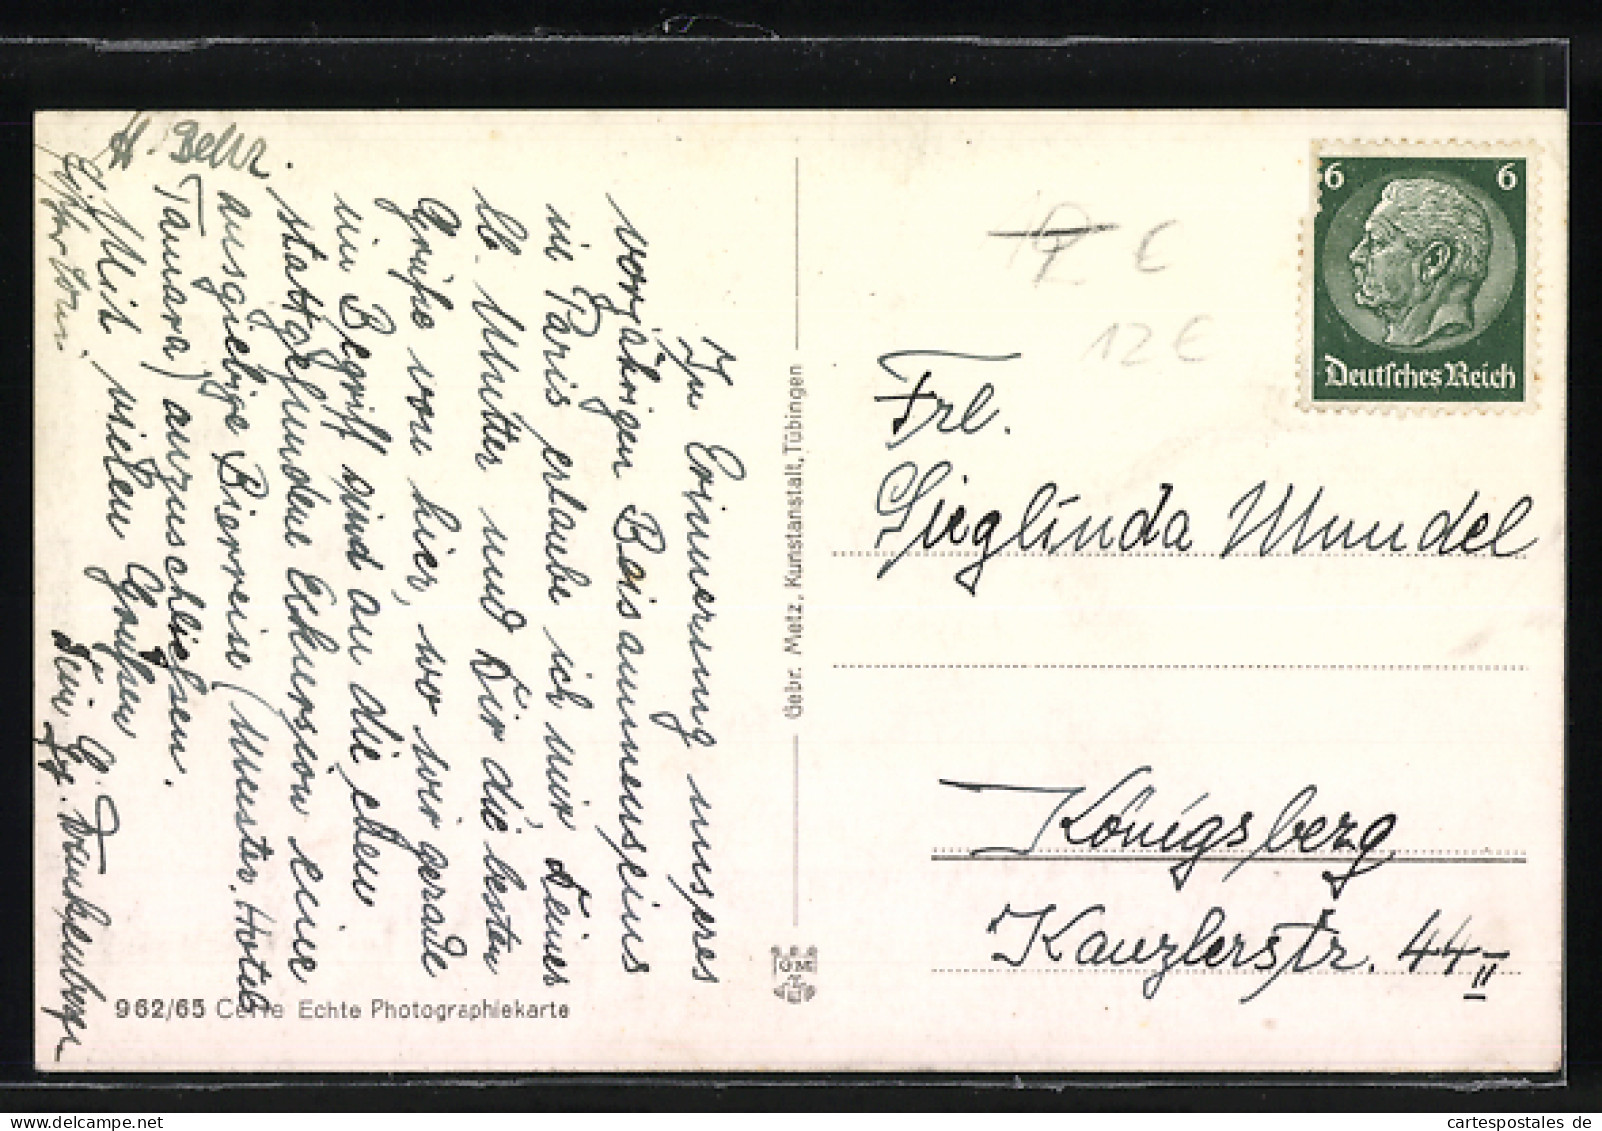 Zur Erinnerung unseres
vorjährigen Beisammenseins
in Paris erlaube ich mir Deiner
lb. Mutter und Dir die besten
Grüße von hier, wo wir gerade
im Begriff sind an die eben
stattgefundene Exkursion eine
ausgiebige Bierreise (Münster. Hotel
Tamara) anzuschließen.
Mit vielen Grüßen
Dein
H. Behr.
Gebr. Metz, Kunstanstalt, Tübingen
962/65 Celle Echte Photographiekarte
GM
12 €
6 6
Deutsches Reich
Frl.
Sieglinda Mundel
Königsberg
Kanzlerstr. 44 II
cartespostales de